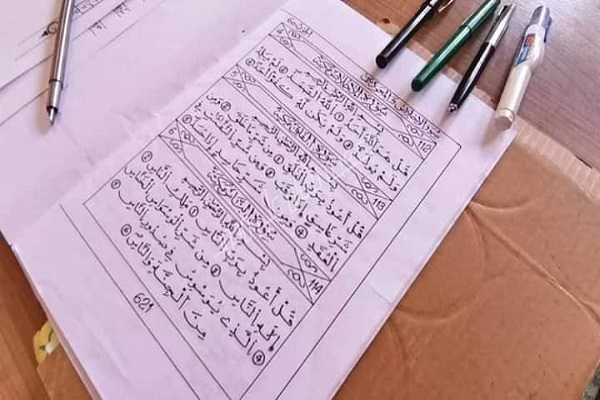 112
بسم الله الرحمن الرحيم
قل هو الله أحد ① الله الصمد ② لم يلد
ولم يولد ③ ولم يكن له كفؤا أحد ④
113
بسم الله الرحمن الرحيم
قل أعوذ برب الفلق ① من شر ما خلق ② ومن
شر غاسق إذا وقب ③ ومن شر النفاثات في
العقد ④ ومن شر حاسد إذا حسد ⑤
114
بسم الله الرحمن الرحيم
قل أعوذ برب الناس ① ملك الناس ②
إله الناس ③ من شر الوسواس الخناس ④
الذي يوسوس في صدور الناس ⑤
من الجنة والناس ⑥
621